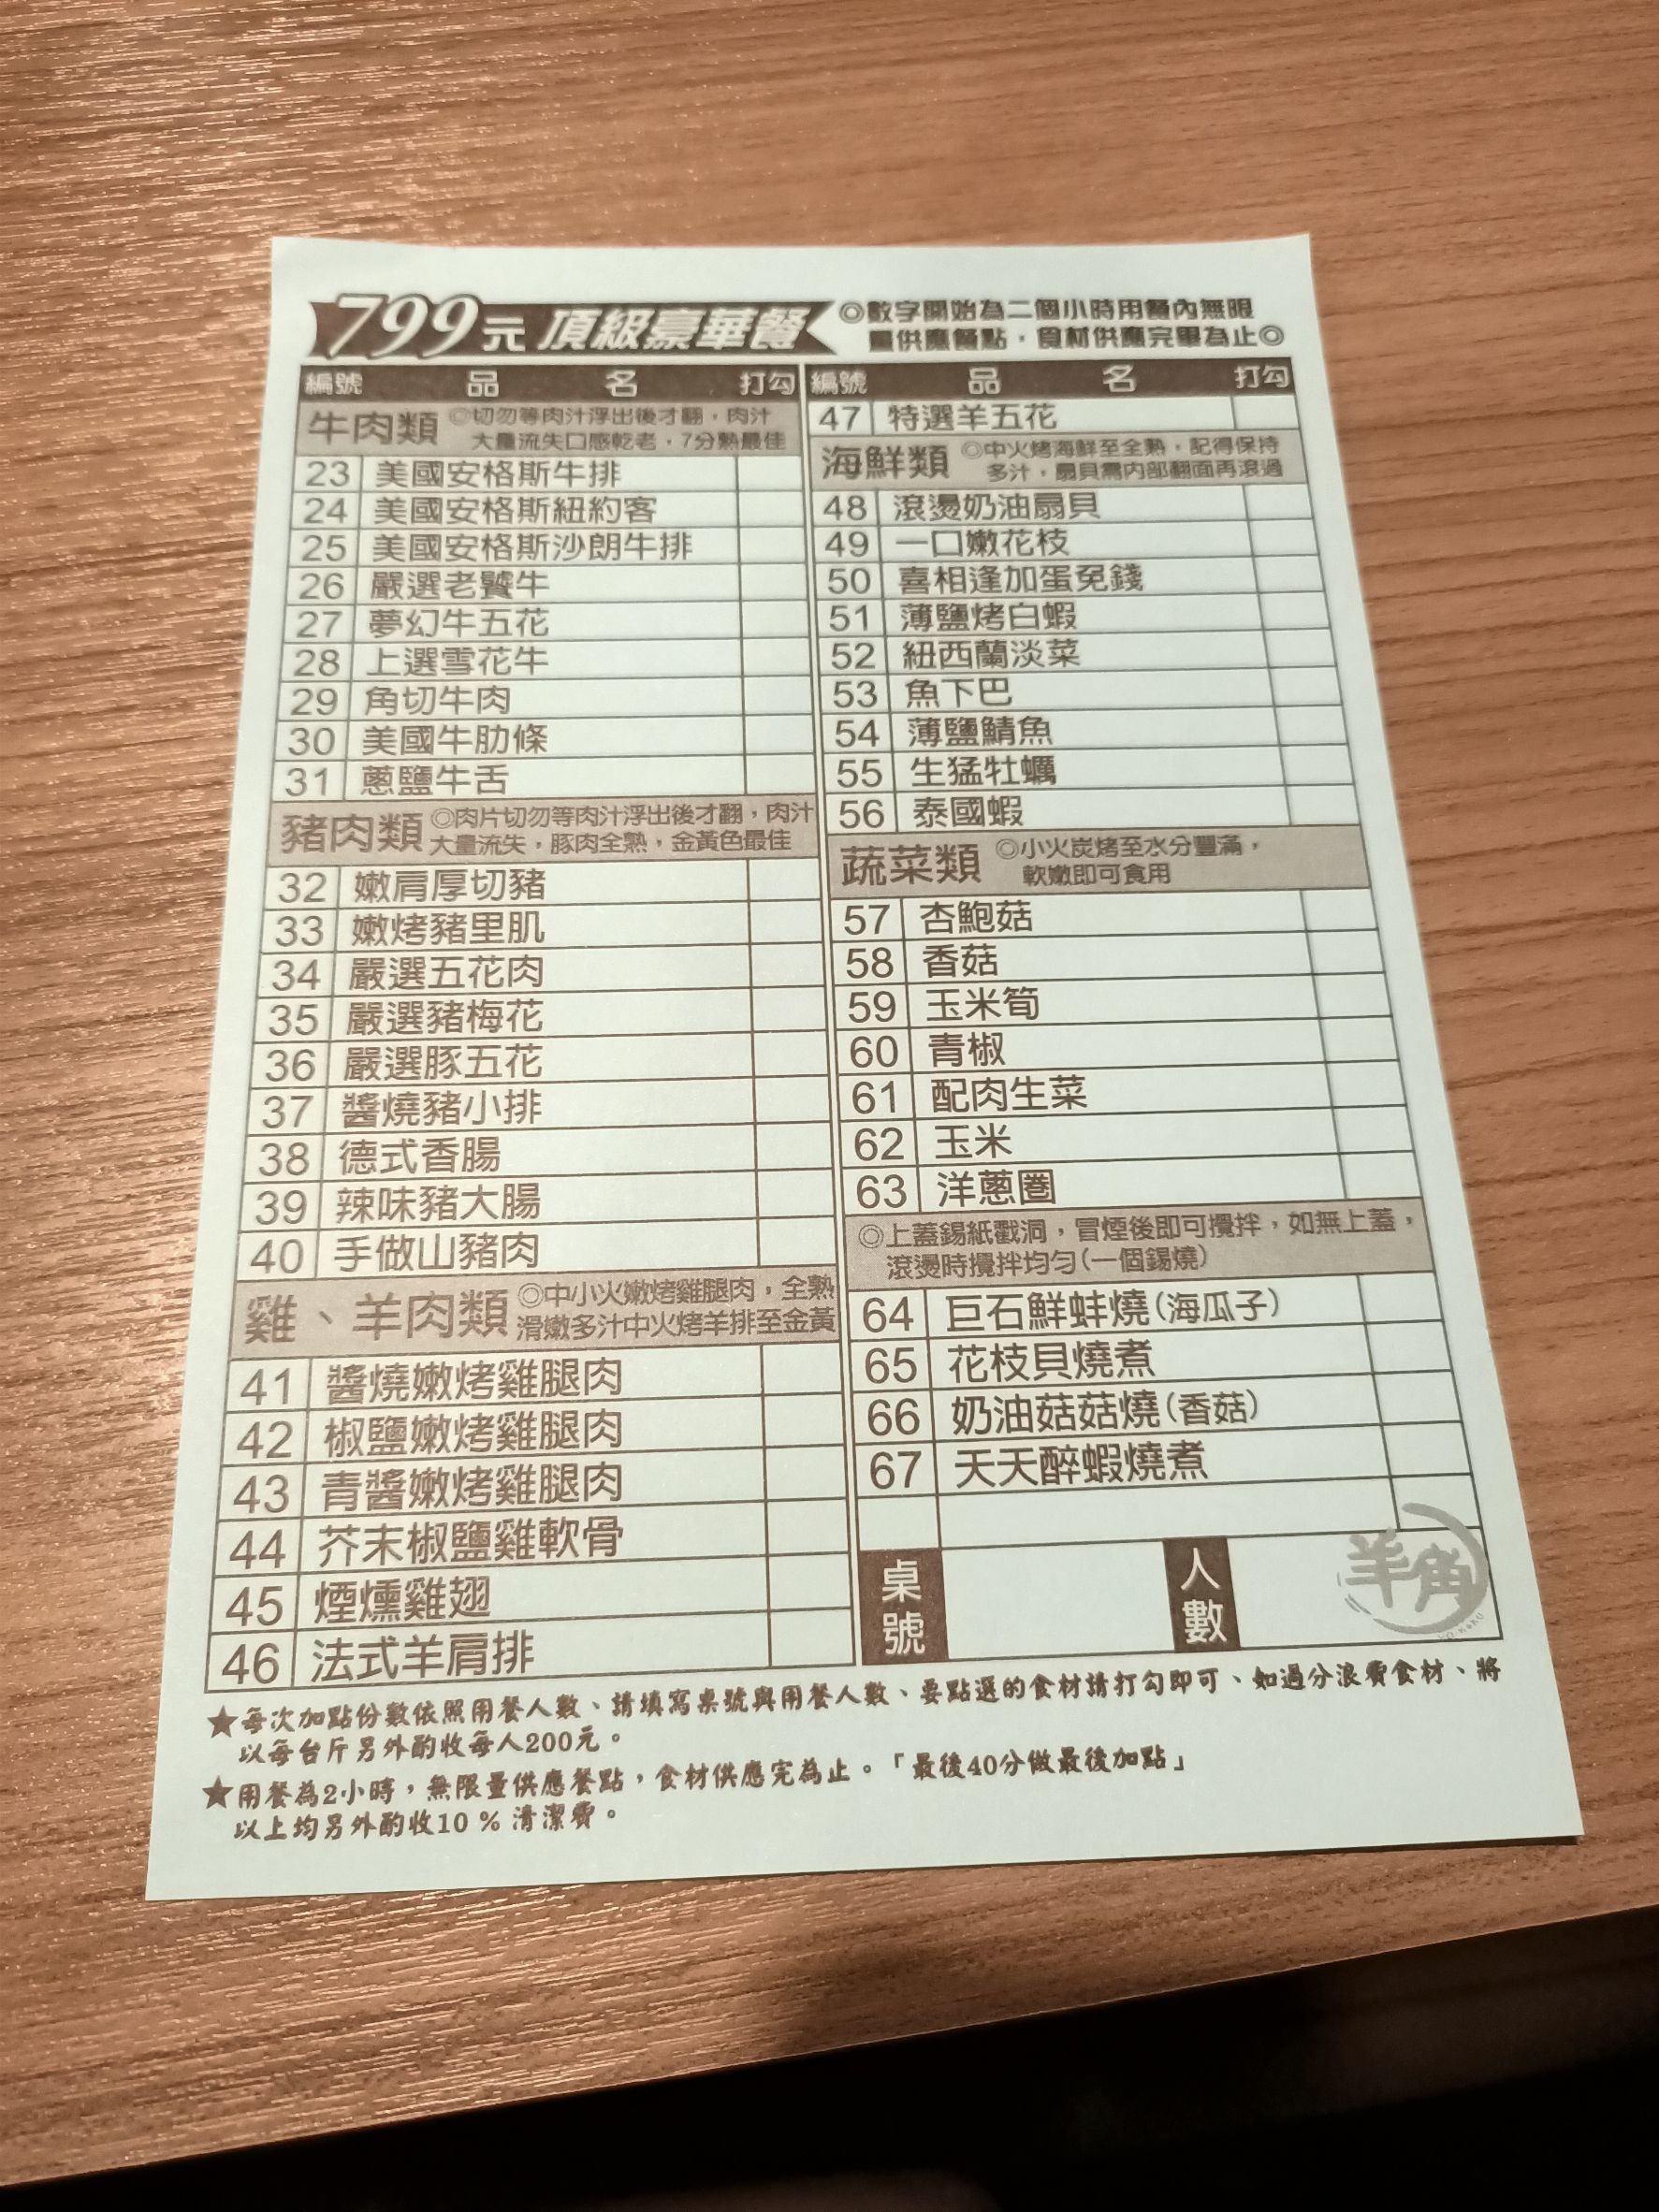 799元 頂級豪華餐
◎數字開始為二個小時用餐內無限
量供應餐點，食材供應完畢為止◎
編號 品名 打勾
牛肉類
◎切勿等肉汁浮出後才翻，肉汁
大量流失口感乾老，7分熟最佳
23 美國安格斯牛排
24 美國安格斯紐約客
25 美國安格斯沙朗牛排
26 嚴選老饕牛
27 夢幻牛五花
28 上選雪花牛
29 角切牛肉
30 美國牛肋條
31 蔥鹽牛舌
豬肉類
◎肉片切勿等肉汁浮出後才翻，肉汁
大量流失，豚肉全熟，金黃色最佳
32 嫩肩厚切豬
33 嫩烤豬里肌
34 嚴選五花肉
35 嚴選豬梅花
36 嚴選豚五花
37 醬燒豬小排
38 德式香腸
39 辣味豬大腸
40 手做山豬肉
雞、羊肉類
◎中小火嫩烤雞腿肉，全熟
滑嫩多汁中火烤羊排至金黃
41 醬燒嫩烤雞腿肉
42 椒鹽嫩烤雞腿肉
43 青醬嫩烤雞腿肉
44 芥末椒鹽雞軟骨
45 煙燻雞翅
46 法式羊肩排
編號 品名 打勾
47 特選羊五花
海鮮類
◎中火烤海鮮至全熟，記得保持
多汁，扇貝需內部翻面再滾過
48 滾燙奶油扇貝
49 一口嫩花枝
50 喜相逢加蛋免錢
51 薄鹽烤白蝦
52 紐西蘭淡菜
53 魚下巴
54 薄鹽鯖魚
55 生猛牡蠣
56 泰國蝦
蔬菜類
◎小火炭烤至水分豐滿，
軟嫩即可食用
57 杏鮑菇
58 香菇
59 玉米筍
60 青椒
61 配肉生菜
62 玉米
63 洋蔥圈
◎上蓋錫紙戳洞，冒煙後即可攪拌，如無上蓋，
滾燙時攪拌均勻(一個錫燒)
64 巨石鮮蚌燒(海瓜子)
65 花枝貝燒煮
66 奶油菇菇燒(香菇)
67 天天醉蝦燒煮
桌號
人數
羊角
★每次加點份數依照用餐人數、請填寫桌號與用餐人數、要點選的食材請打勾即可、如過分浪費食材、將
以每台斤另外酌收每人200元。
★用餐為2小時，無限量供應餐點，食材供應完為止。「最後40分做最後加點」
以上均另外酌收10%清潔費。